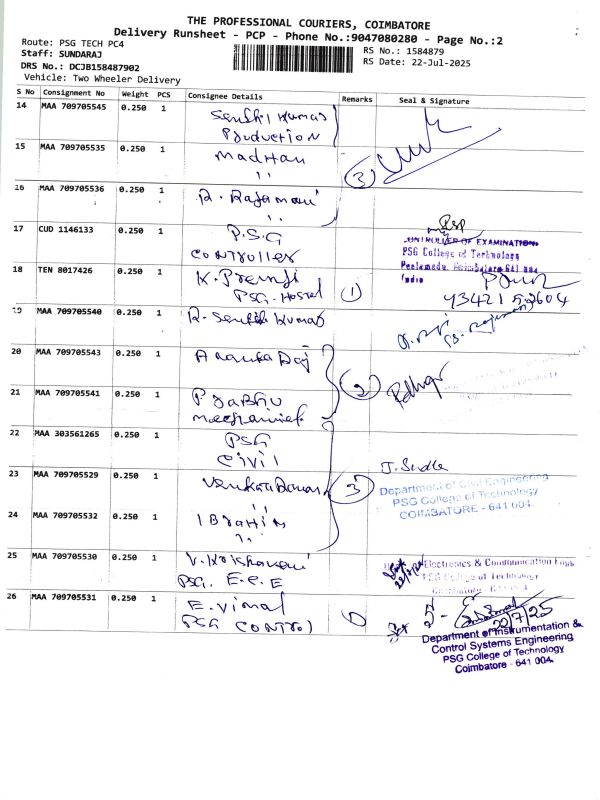 THE PROFESSIONAL COURIERS, COIMBATORE
Delivery Runsheet - PCP - Phone No.:9047080280 - Page No.:2
Route: PSG TECH PC4
Staff: SUNDARAJ
DRS No.: DCJB158487902
Vehicle: Two Wheeler Delivery
RS No.: 1584879
RS Date: 22-Jul-2025
S No Consignment No Weight PCS Consignee Details Remarks Seal & Signature
14 MAA 709705545 0.250 1 Senthil Kumar
Production
15 MAA 709705535 0.250 1 Madhan
,, 3
16 MAA 709705536 0.250 1 R. Rajamani
,,
17 CUD 1146133 0.250 1 P.S.G
Controller
CONTROLLER OF EXAMINATIONS
PSG College of Technology
Peelamedu, Coimbatore-641 004
India
18 TEN 8017426 0.250 1 K. Premji
PSG. Hostel 1
19 MAA 709705540 0.250 1 R. Senthil Kumar
20 MAA 709705543 0.250 1 Ananda Raj
2
21 MAA 709705541 0.250 1 Prabhu
mechanical
22 MAA 303561265 0.250 1 PSG
Civil
23 MAA 709705529 0.250 1 Venkata 3
Department of Civil Engineering
PSG College of Technology
COIMBATORE - 641 004.
24 MAA 709705532 0.250 1 IBrahim
,,
25 MAA 709705530 0.250 1 V. Krishaveni
PSG. E.C.E
Electronics & Communication Engg
PSG College of Technology
26 MAA 709705531 0.250 1 E. Vimal
PSG Control 1
22/7/25
Department of Instrumentation &
Control Systems Engineering
PSG College of Technology
Coimbatore - 641 004.